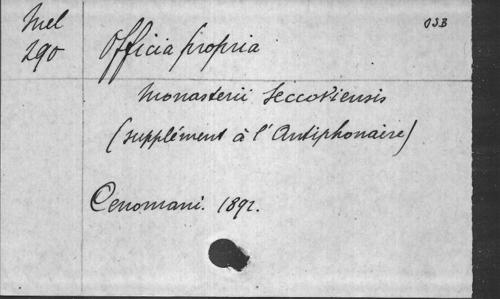 Mel
290
OSB
Officia propria
Monasterii Seccoviensis
(supplément à l'Antiphonaire)
Cenomani. 1892.